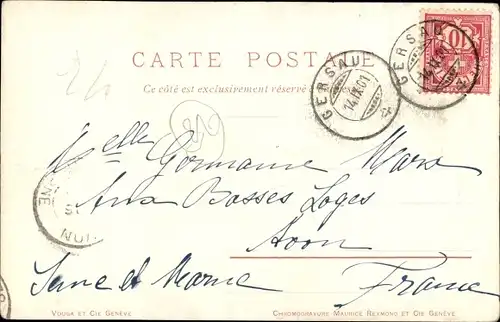 CARTE POSTALE
Ce côté est exclusivement réservé
GERSAU
14.IX.01
GERSAU
14.IX.01
10
Melle Germaine Marx
Aux Basses Loges
Avon
Seine et Marne France
VOUGA ET CIE GENÈVE
CHROMOGRAVURE MAURICE REYMOND ET CIE GENÈVE